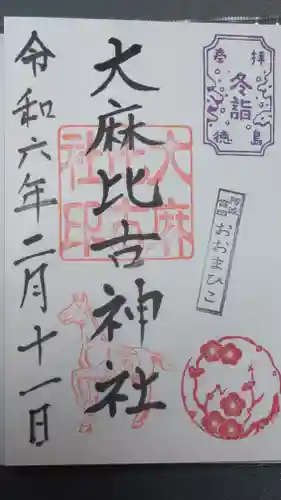 奉拝
冬詣
徳島
阿波国一宮
おおまひこ
大麻比古神社
大麻比古神社印
令和六年二月十一日